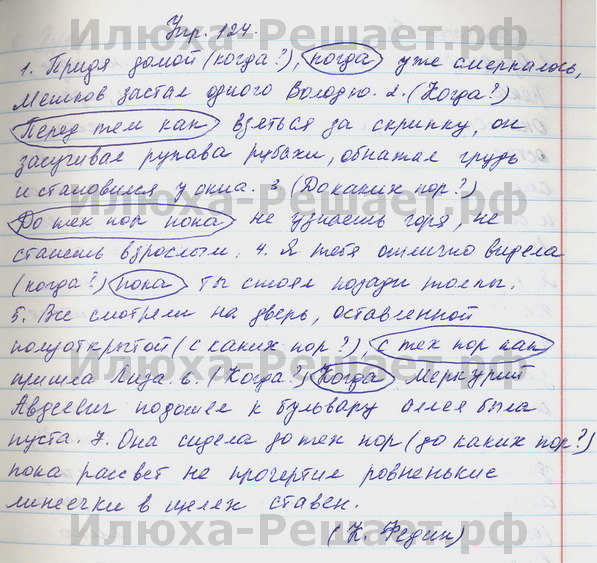 Илюха-Решает.рф
Упр. 124.
1. Придя домой (когда?), когда уже смеркалось,
Мешков застал одного Володю. 2. (Когда?)
Перед тем как взяться за скрипку, он
засучивал рукава рубахи, обнажал грудь
и становился у окна. 3 (До каких пор?)
Илюха-Решает.рф
До тех пор пока не узнаешь горя, не
станешь взрослым. 4. Я тебя отлично видела
(когда?) пока ты стоял позади толпы.
5. Все смотрели на дверь, оставленной
полуоткрытой (с каких пор?) с тех пор как
Илюха-Решает.рф
пришла Лиза. 6. (Когда?) Когда Меркурий
Авдеевич подошел к бульвару аллея была
пуста. 7. Она сидела до тех пор (до каких пор?)
пока рассвет не прочертил ровненькие
линеечки в щелях ставен.
Илюха-Решает.рф
(К. Федин)